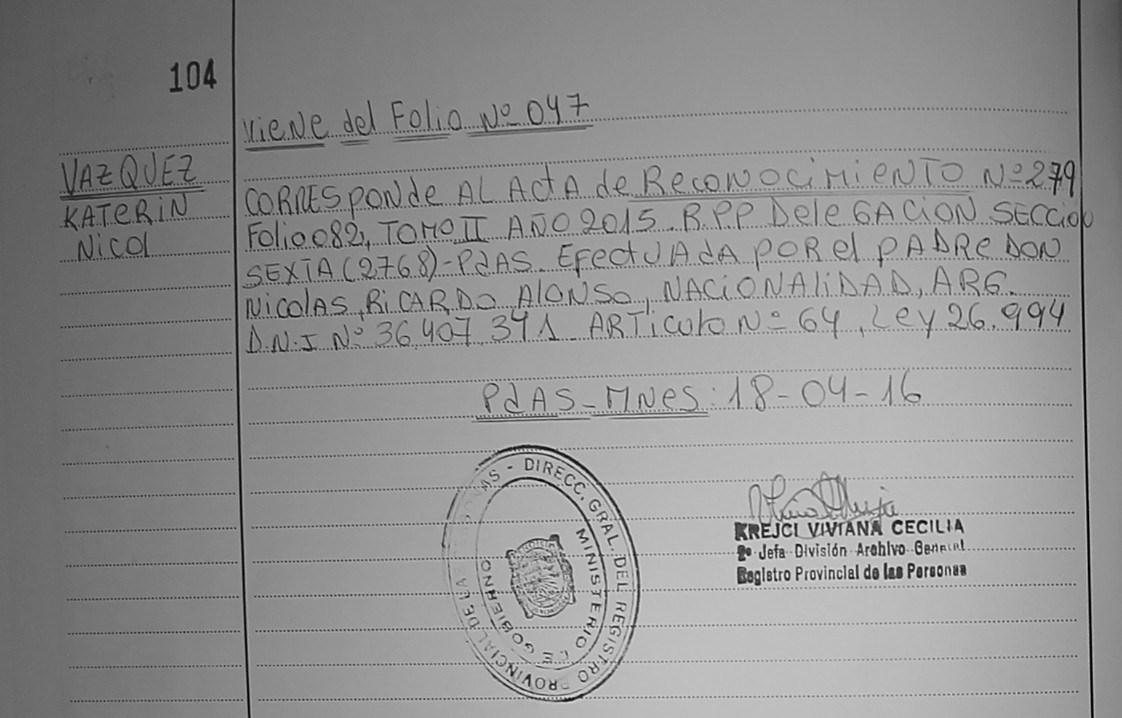 104
Viene del Folio Nº 047
VAZQUEZ
KATERIN
Nicol
CORRESponde AL ActA de Reconocimiento Nº 279
Folio 082, TOMO II AÑO 2015. R.P.P DeleGACION SECCION
SEXTA (2768)-PdAS. EfectuAdA POR el PADRE DON
Nicolas, RiCARDO Alonso, NACIONALIDAD, ARG.
D.N.I Nº 36.407.341. ARTiculo Nº 64, Ley 26.994
PdAS-MNes: 18-04-16
DIRECC. GRAL. DEL REGISTRO PROVINCIAL DE LA
MINISTERIO DE GOBIERNO
KREJCI VIVIANA CECILIA
2º Jefa División Archivo General
Registro Provincial de las Personas